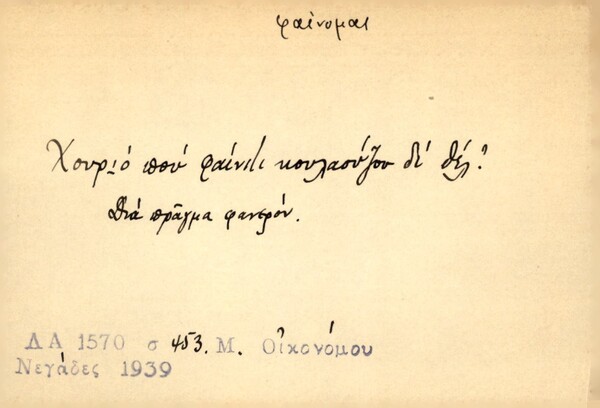 φαίνομαι
Χουριό πού φαίνιτι κουλαούζου δέ θέλ'.
Διά πρᾶγμα φανερόν.
ΔΑ 1570 σ 453. Μ. Οἰκονόμου
Νεγάδες 1939